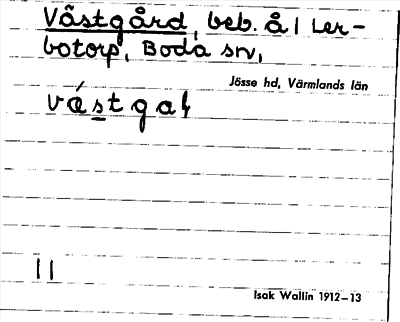 Västgård, beb. å 1 Ler-
botorp, Boda sn,
Jösse hd, Värmlands län
vástgaɫ
11
Isak Wallin 1912–13